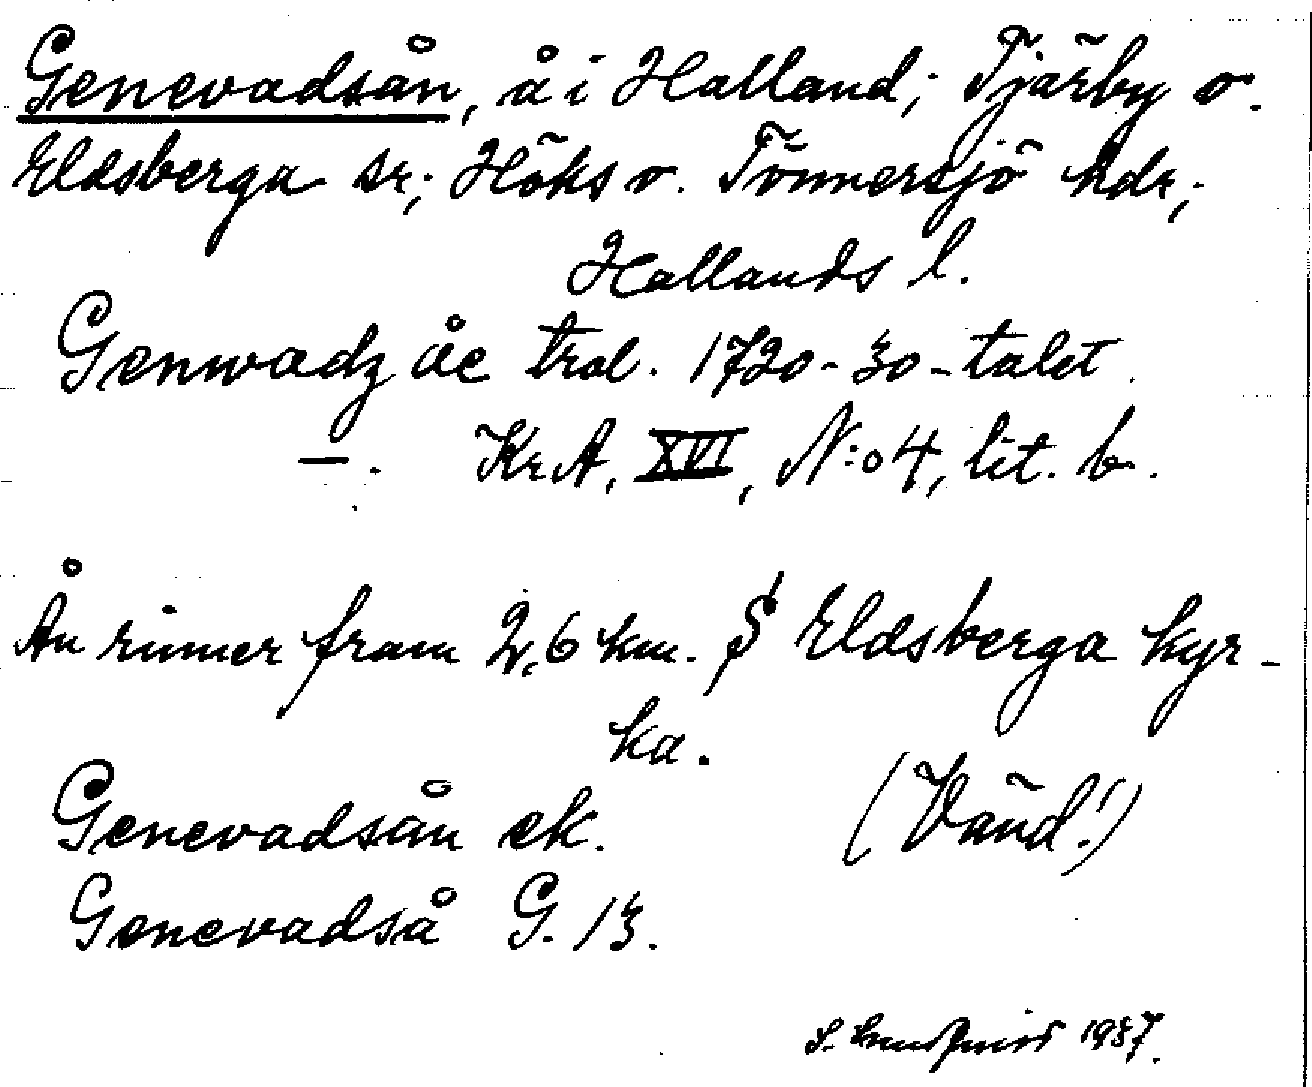 Genevadsån, å i Halland; Tjärby o.
Eldsberga sr; Höks o. Tönnersjö hdr;
Hallands l.
Genwadz åe trol. 1720-30-talet.
—. KrA, XVI, N:o 4, lit. b.
Ån rinner fram 2,6 km. S Eldsberga kyr-
ka.
(Vänd!)
Genevadsån ek.
Genevadså G. 13.
S. 1937.